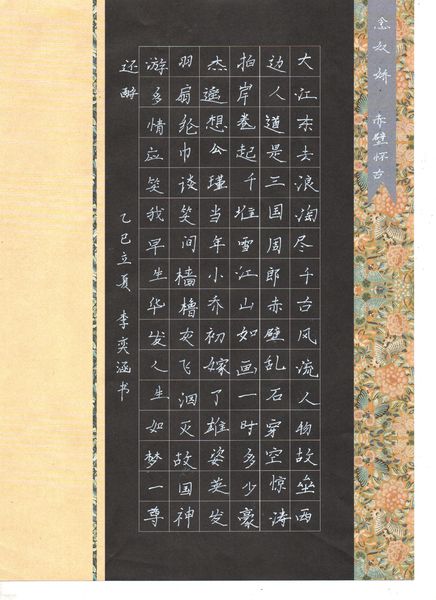 念奴娇 赤壁怀古
大江东去浪淘尽千古风流人物故垒西
边人道是三国周郎赤壁乱石穿空惊涛
拍岸卷起千堆雪江山如画一时多少豪
杰遥想公瑾当年小乔初嫁了雄姿英发
羽扇纶巾谈笑间樯橹灰飞洇灭故国神
游多情应笑我早生华发人生如梦一尊
还酹
乙巳立夏 李奕涵书